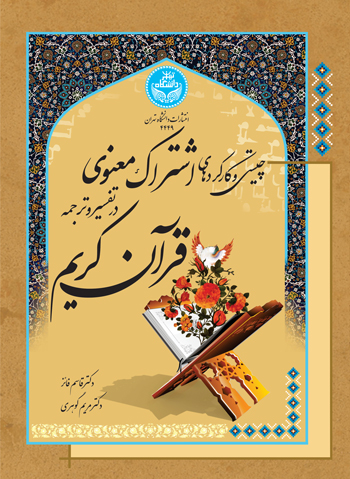 دانشگاه تهران
انتشارات دانشگاه تهران
۴۴۴۹
چیستی و کارکردهای اشتراک معنوی
در تفسیر و ترجمه
قرآن کریم
دکتر قاسم فائز
دکتر مریم گوهری